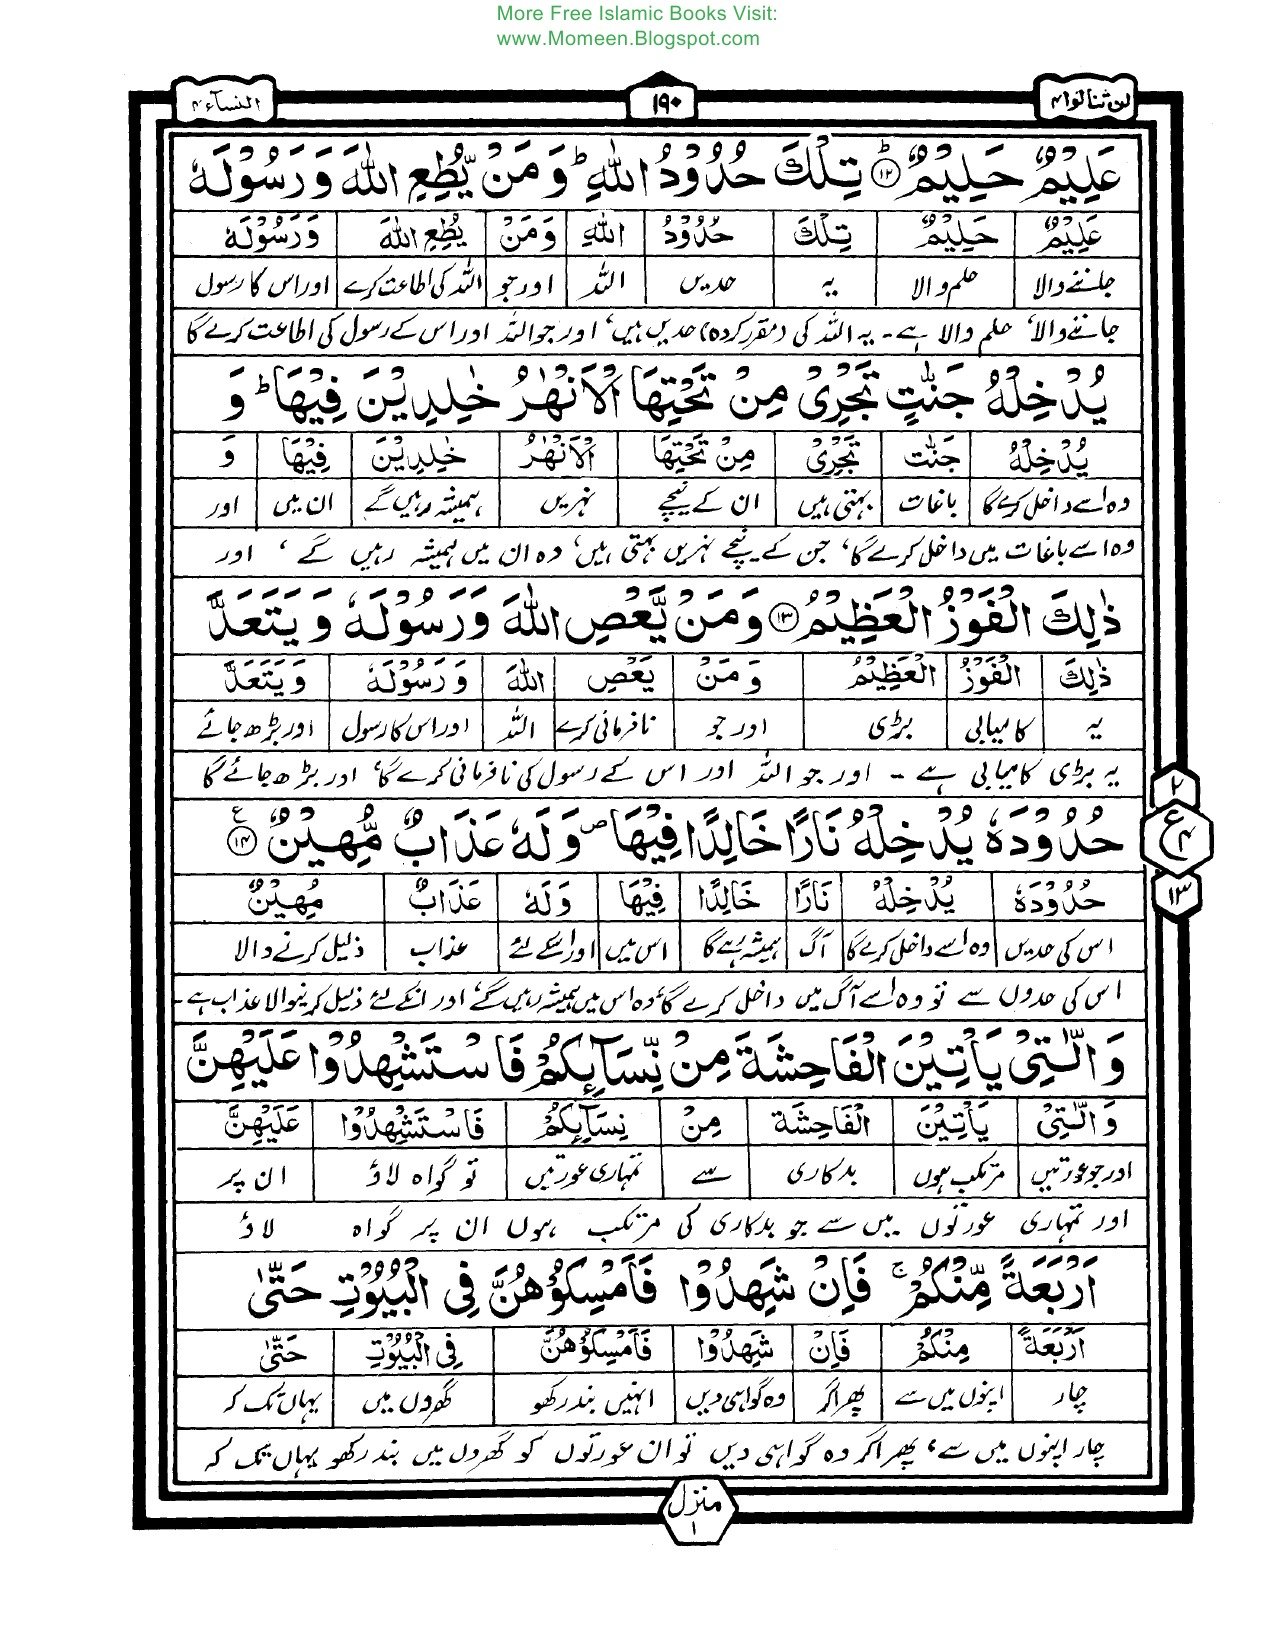 More Free Islamic Books Visit:
www.Momeen.Blogspot.com
لن تنالوا ۴ ۱۹۰ النسآء ۴
عَلِيْمٌ حَلِيْمٌ ۱۲ ؕ تِلْكَ حُدُوْدُ اللّٰهِ ؕ وَمَنْ يُّطِعِ اللّٰهَ وَرَسُوْلَهٗ
عَلِيْمٌ حَلِيْمٌ تِلْكَ حُدُوْدُ اللّٰهِ وَمَنْ يُطِعِ اللّٰهَ وَرَسُوْلَهٗ
جاننے والا حلم والا یہ حدیں اللہ اور جو اللہ کی اطاعت کرے اور اس کا رسول
جاننے والا، حلم والا ہے۔ یہ اللہ کی (مقرر کردہ) حدیں ہیں، اور جو اللہ اور اس کے رسول کی اطاعت کرے گا
يُدْخِلْهُ جَنّٰتٍ تَجْرِيْ مِنْ تَحْتِهَا الْاَنْهٰرُ خٰلِدِيْنَ فِيْهَا ؕ وَ
يُدْخِلْهُ جَنّٰت تَجْرِيْ مِنْ تَحْتِهَا الْاَنْهٰرُ خٰلِدِيْنَ فِيْهَا وَ
وہ اسے داخل کرے گا باغات بہتی ہیں ان کے نیچے نہریں ہمیشہ رہیں گے ان میں اور
وہ اسے باغات میں داخل کرے گا، جن کے نیچے نہریں بہتی ہیں، وہ ان میں ہمیشہ رہیں گے، اور
ذٰلِكَ الْفَوْزُ الْعَظِيْمُ ۱۳ وَمَنْ يَّعْصِ اللّٰهَ وَرَسُوْلَهٗ وَيَتَعَدَّ
ذٰلِكَ الْفَوْزُ الْعَظِيْمُ وَمَنْ يَعْصِ اللّٰهَ وَرَسُوْلَهٗ وَيَتَعَدَّ
یہ کامیابی بڑی اور جو نافرمانی کرے اللہ اور اس کا رسول اور بڑھ جائے
یہ بڑی کامیابی ہے۔ اور جو اللہ اور اس کے رسول کی نافرمانی کرے گا، اور بڑھ جائے گا
حُدُوْدَهٗ يُدْخِلْهُ نَارًا خَالِدًا فِيْهَا ص وَلَهٗ عَذَابٌ مُّهِيْنٌ ۱۴ ع
۲
ع ۴
۱۳
حُدُوْدَهٗ يُدْخِلْهُ نَارًا خَالِدًا فِيْهَا وَلَهٗ عَذَابٌ مُهِيْنٌ
اس کی حدیں وہ اسے داخل کرے گا آگ ہمیشہ رہے گا اس میں اور اسکے لئے عذاب ذلیل کرنے والا
اس کی حدوں سے تو وہ اسے آگ میں داخل کرے گا، وہ اس میں ہمیشہ رہیں گے، اور انکے لئے ذلیل کرنیوالا عذاب ہے۔
وَالّٰتِيْ يَأْتِيْنَ الْفَاحِشَةَ مِنْ نِّسَآئِكُمْ فَاسْتَشْهِدُوْا عَلَيْهِنَّ
وَالّٰتِيْ يَأْتِيْنَ الْفَاحِشَة مِنْ نِسَآئِكُمْ فَاسْتَشْهِدُوْا عَلَيْهِنَّ
اور جو عورتیں مرتکب ہوں بدکاری سے تمہاری عورتیں تو گواہ لاؤ ان پر
اور تمہاری عورتوں میں سے جو بدکاری کی مرتکب ہوں ان پر گواہ لاؤ
اَرْبَعَةً مِّنْكُمْ ۚ فَاِنْ شَهِدُوْا فَاَمْسِكُوْهُنَّ فِي الْبُيُوْتِ حَتّٰى
اَرْبَعَةً مِنْكُمْ فَاِنْ شَهِدُوْا فَاَمْسِكُوْهُنَّ فِي الْبُيُوْتِ حَتّٰى
چار اپنوں میں سے پھر اگر وہ گواہی دیں انہیں بند رکھو گھروں میں یہاں تک کہ
چار اپنوں میں سے، پھر اگر وہ گواہی دیں تو ان عورتوں کو گھروں میں بند رکھو یہاں تک کہ
منزل ۱